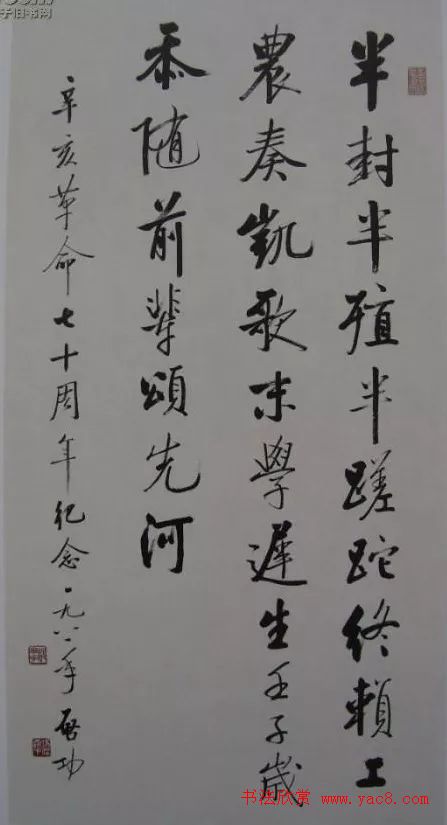 半封半殖半蹉跎终赖工
農奏凱歌末學遲生壬子歲
忝随前輩頌先河
辛亥革命七十周年纪念一九八一年啓功
书法欣赏 www.yac8.com